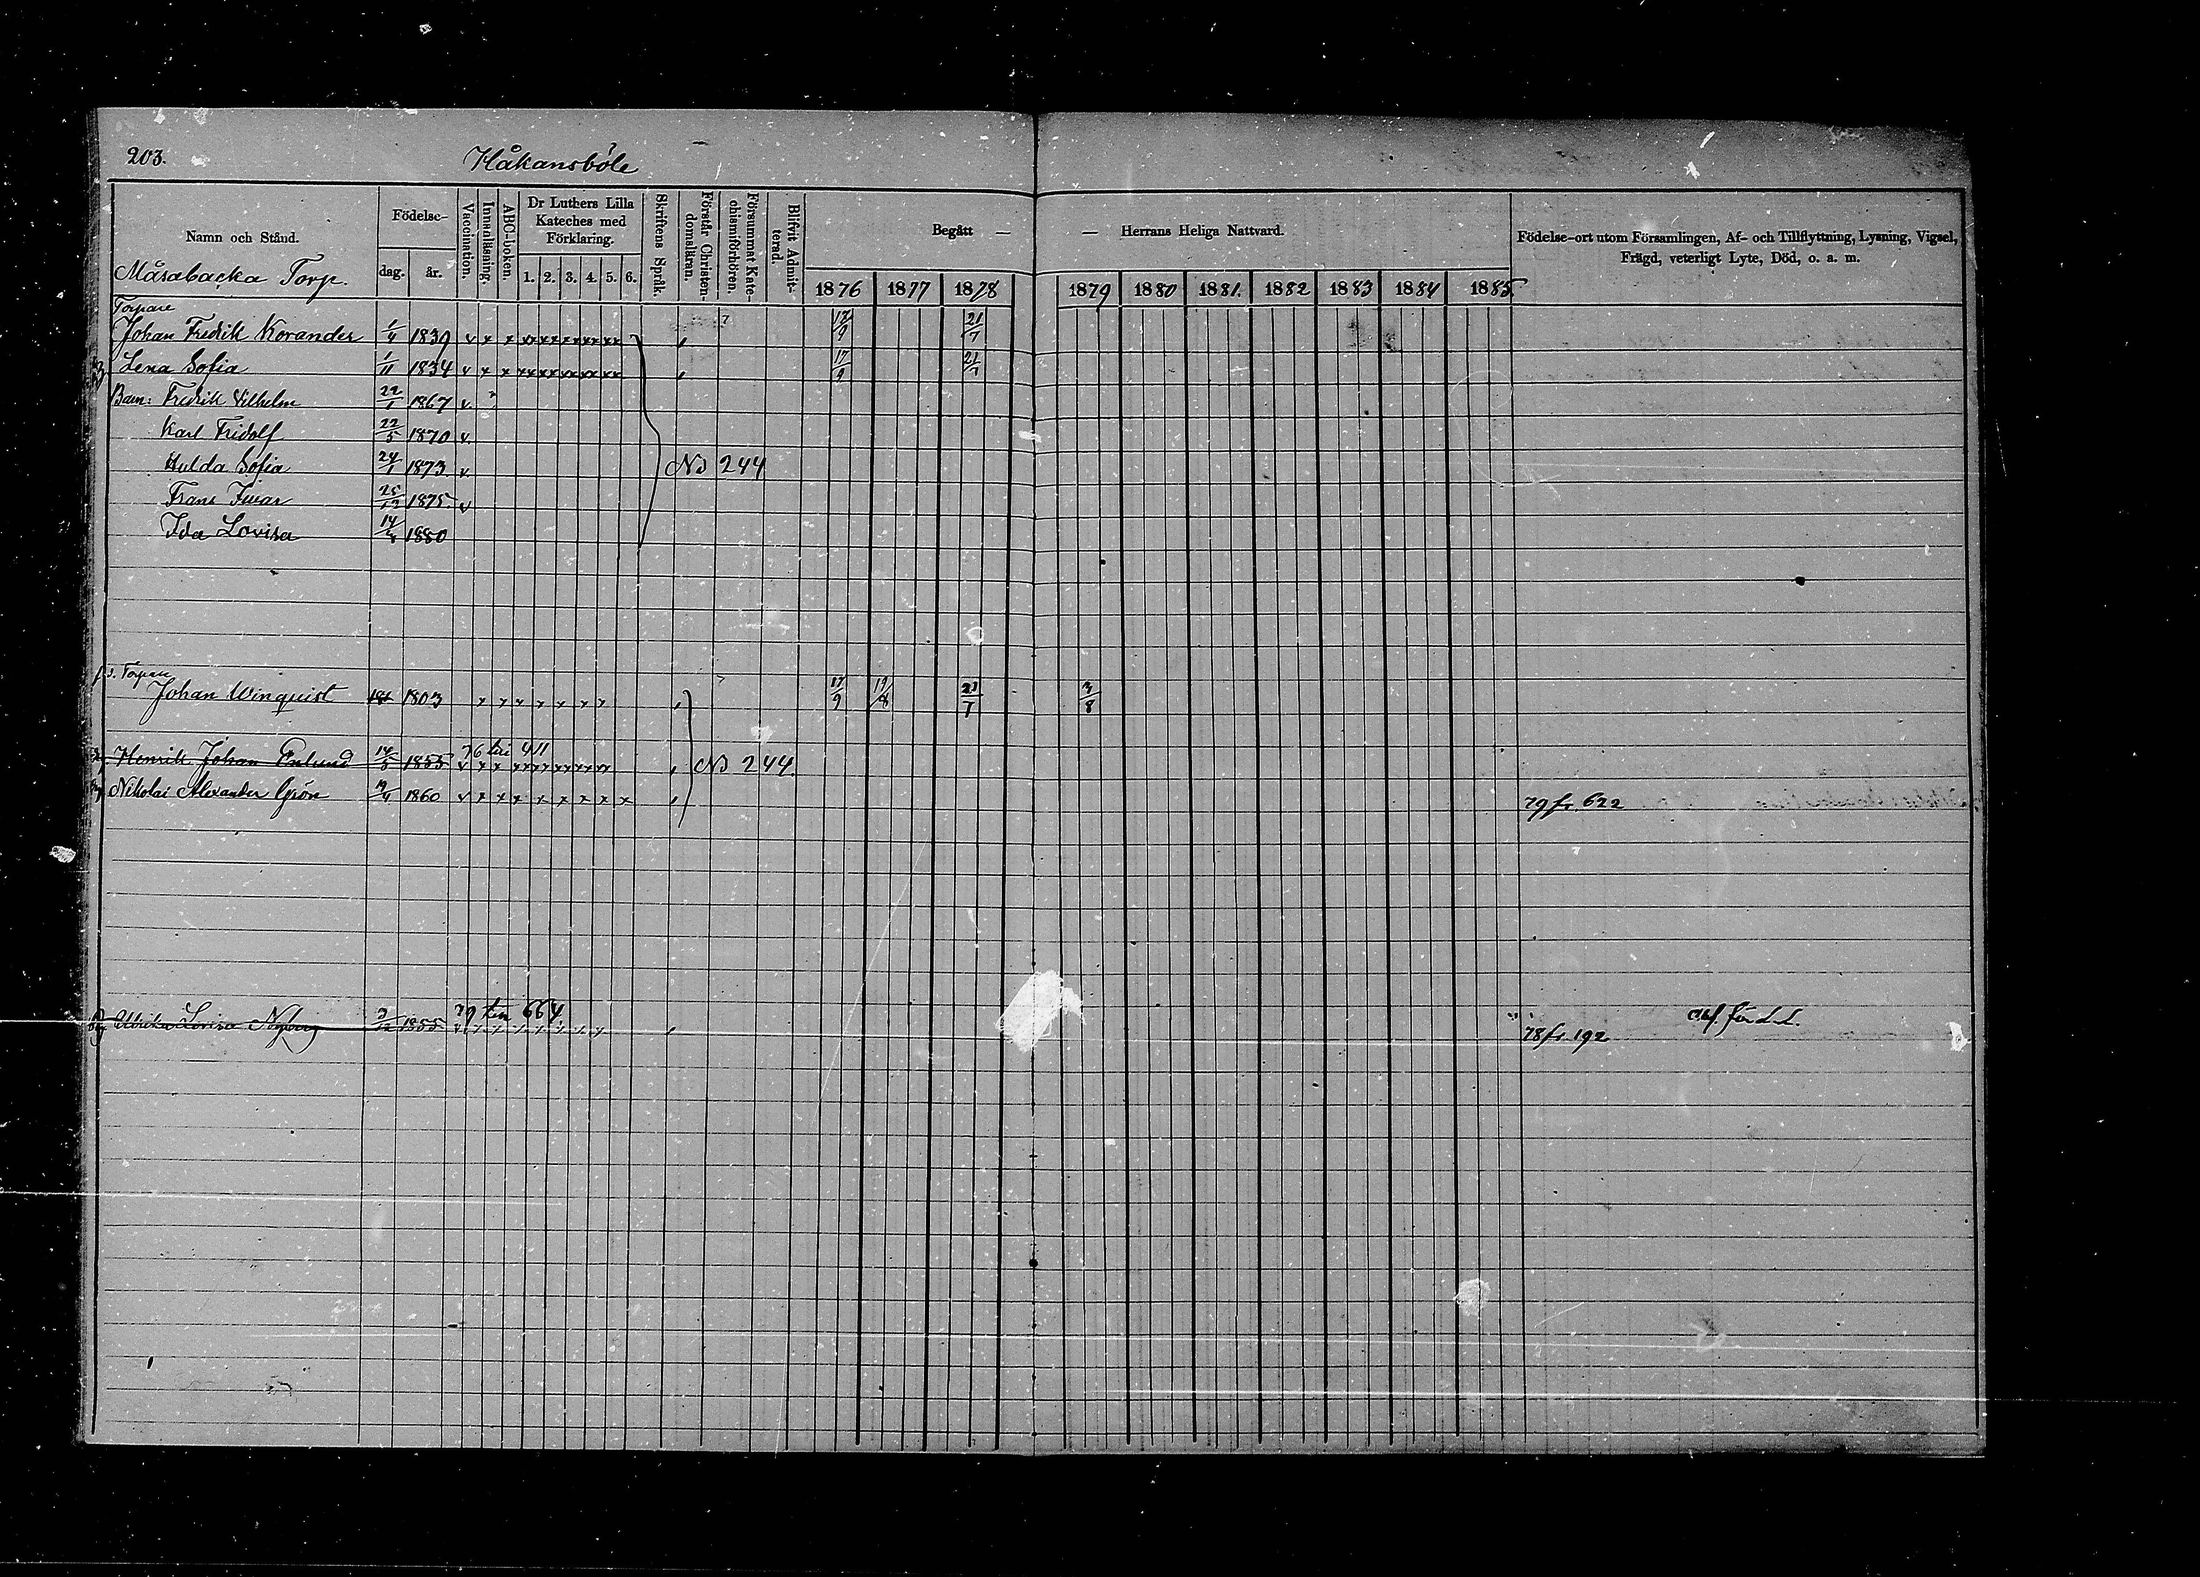 203.
Håkansböle
Namn och Stånd.
Födelse-
dag.
år.
Vaccination.
Innanläsning.
ABC-boken.
Dr Luthers Lilla
Kateches med
Förklaring.
1. 2. 3. 4. 5. 6.
Skriftens Språk.
Förstår Christen-
domsläran.
Försummat Kate-
chismiförhören.
Blifvit Admit-
terad.
Begått — — Herrans Heliga Nattvard.
1876 1877 1878 1879 1880 1881. 1882 1883 1884 1885
Födelse-ort utom Församlingen, Af- och Tillflyttning, Lysning, Vigsel,
Frägd, veterligt Lyte, Död, o. a. m.
Måsabacka Torp.
Torpare
Johan Fredrik Korander 1839 21/7
Lena Sofia 1/11 1834 17/9 21/7
Barn: Fredrik Vilhelm 22/1 1867
Karl Fridolf 22/5 1870
Hulda Sofia 24/1 1873 NB 244
Frans Ivar 25/12 1875
Ida Lovisa 1880
Torpare
Johan Winquist 1803 17/9 19/8 21/7 3/8
76 till 411
Henrik Johan Enlund 1855 NB 244.
Nikolai Alexander Grön 1860 79 fr. 622
79 till 664
Ulrika Lovisa Nyberg 1855 78 fr. 192